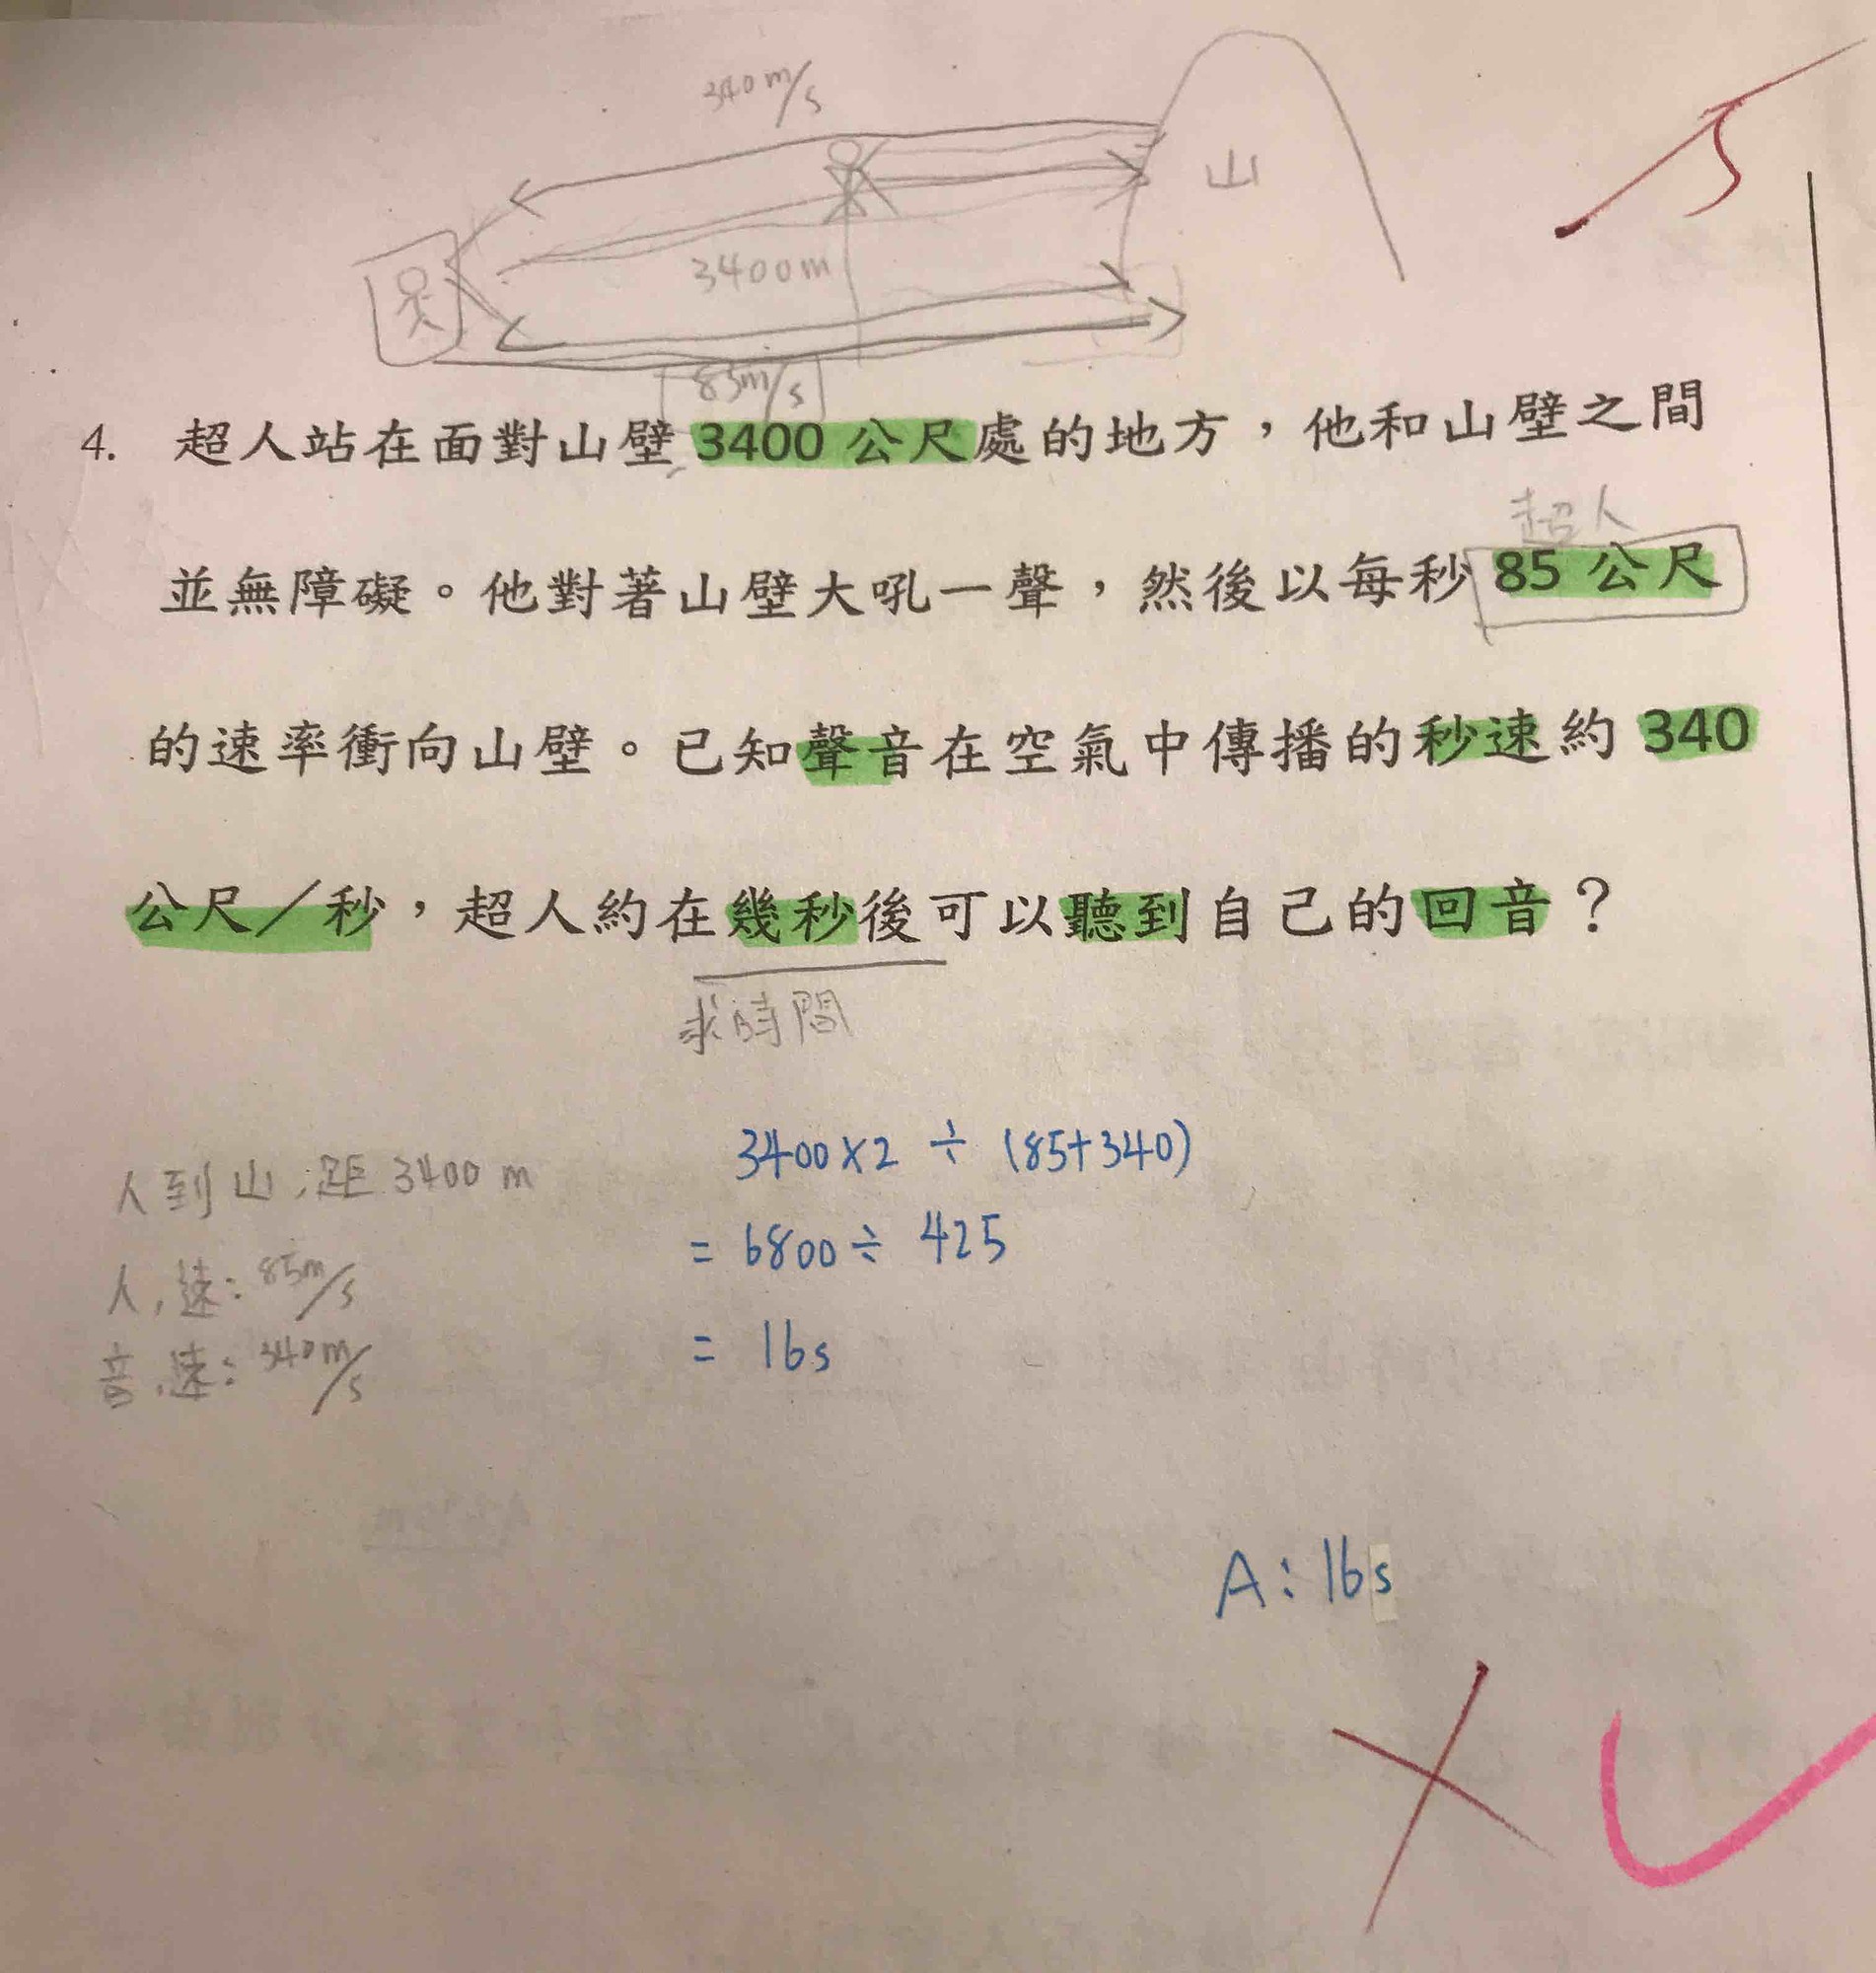 340m/s
山
3400m
85m/s
4. 超人站在面對山壁 3400 公尺處的地方，他和山壁之間
超人
並無障礙。他對著山壁大吼一聲，然後以每秒 85 公尺
的速率衝向山壁。已知聲音在空氣中傳播的秒速約 340
公尺／秒，超人約在幾秒後可以聽到自己的回音？
求時間
3400×2 ÷ (85+340)
人到山,距 3400 m
= 6800 ÷ 425
人,速: 85m/s
= 16s
音,速: 340m/s
A: 16s